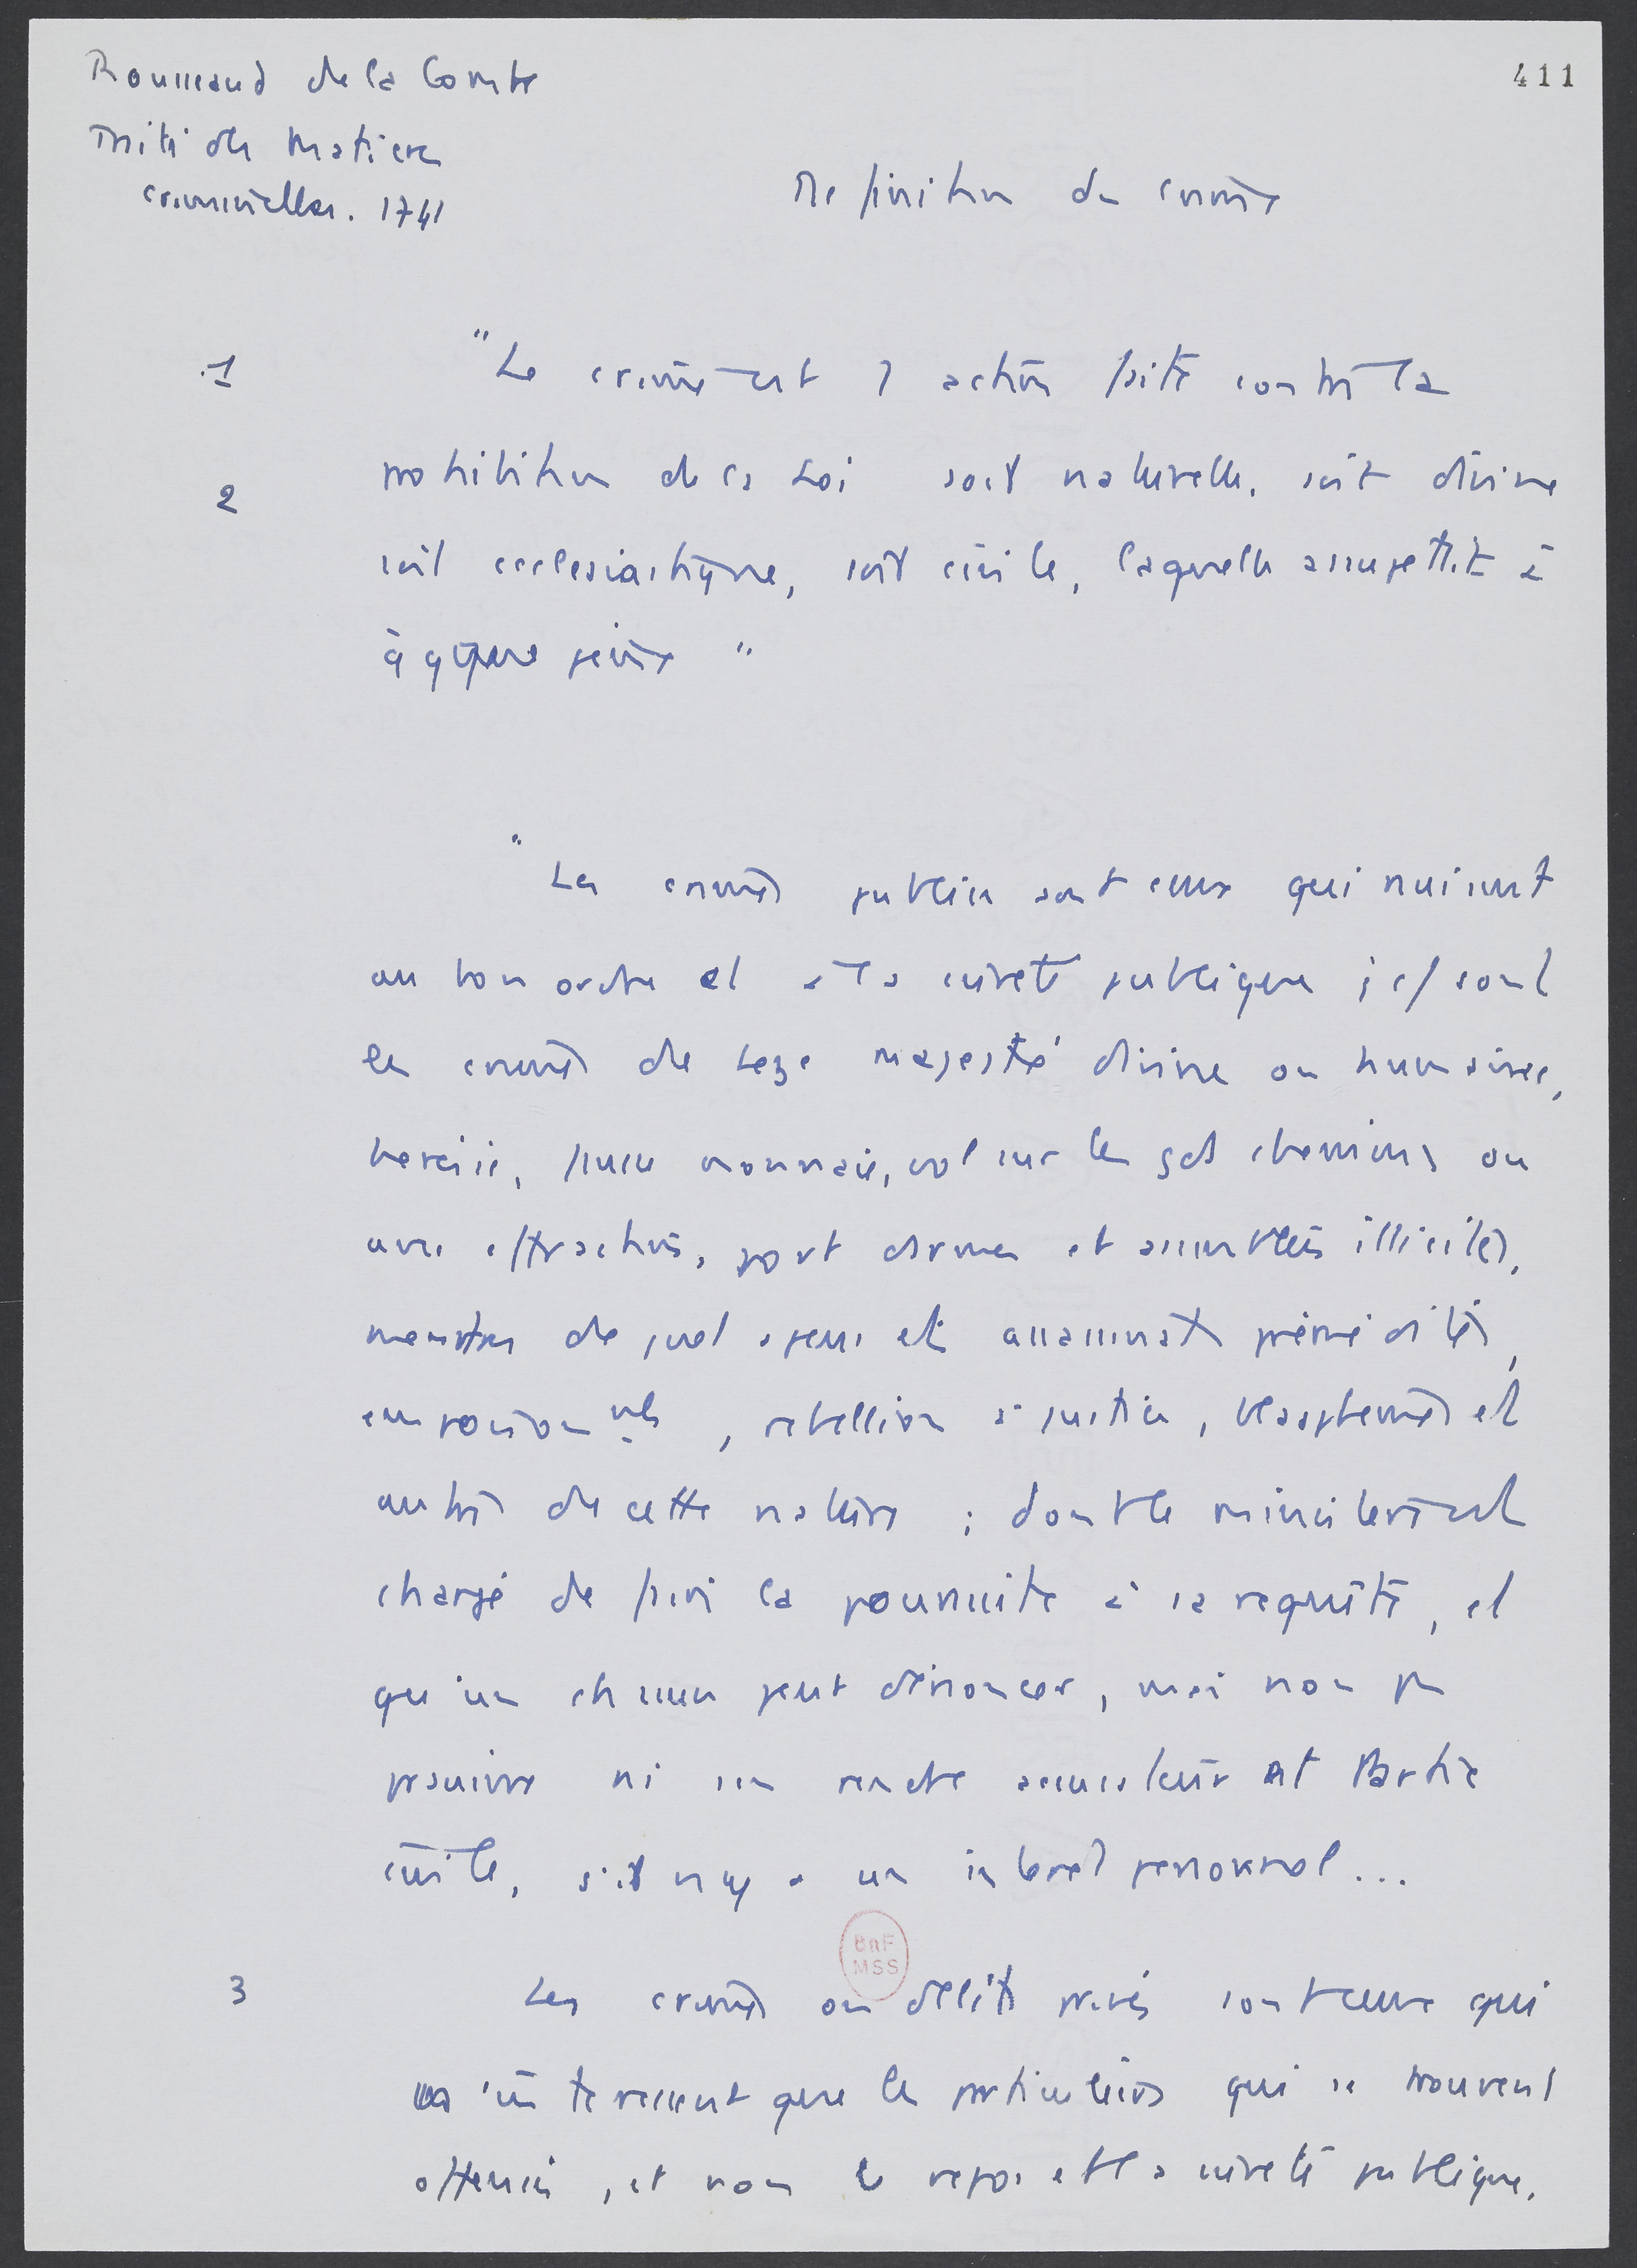 Rousseaud de la Combe
Traité des Matières
criminelles. 1741
411
Définition du crime
1
"Le crime est 1 action faite contre la
2
prohibition de la Loi soit naturelle, soit divine
soit ecclesiastique, soit civile, laquelle assujettit à
à qque peine "
"Les crimes publics sont ceux qui nuisent
au bon ordre et à la sureté publique ; c/ sont
les crimes de Leze majesté divine ou humaine,
heresie, fausse monnaie, vol sur les gds chemins ou
avec effraction, port d'armes et assemblées illicites,
meurtres de guet apens et assassinats prémédités,
empoisonnmts, rebellion à justice, blasphemes et
autres de cette nature ; dont le ministere est
chargé de faire la poursuite à sa requête, et
qu'un chacun peut dénoncer, mais non pas
poursuivre ni s'en rendre accusateur et Partie
civile, s'il n'y a un interet personnel...
BnF
MSS
3
Les crimes ou délits privés sont ceux qui
n'interessent que les particuliers qui se trouvent
offensés, et non le repos et la sureté publique.